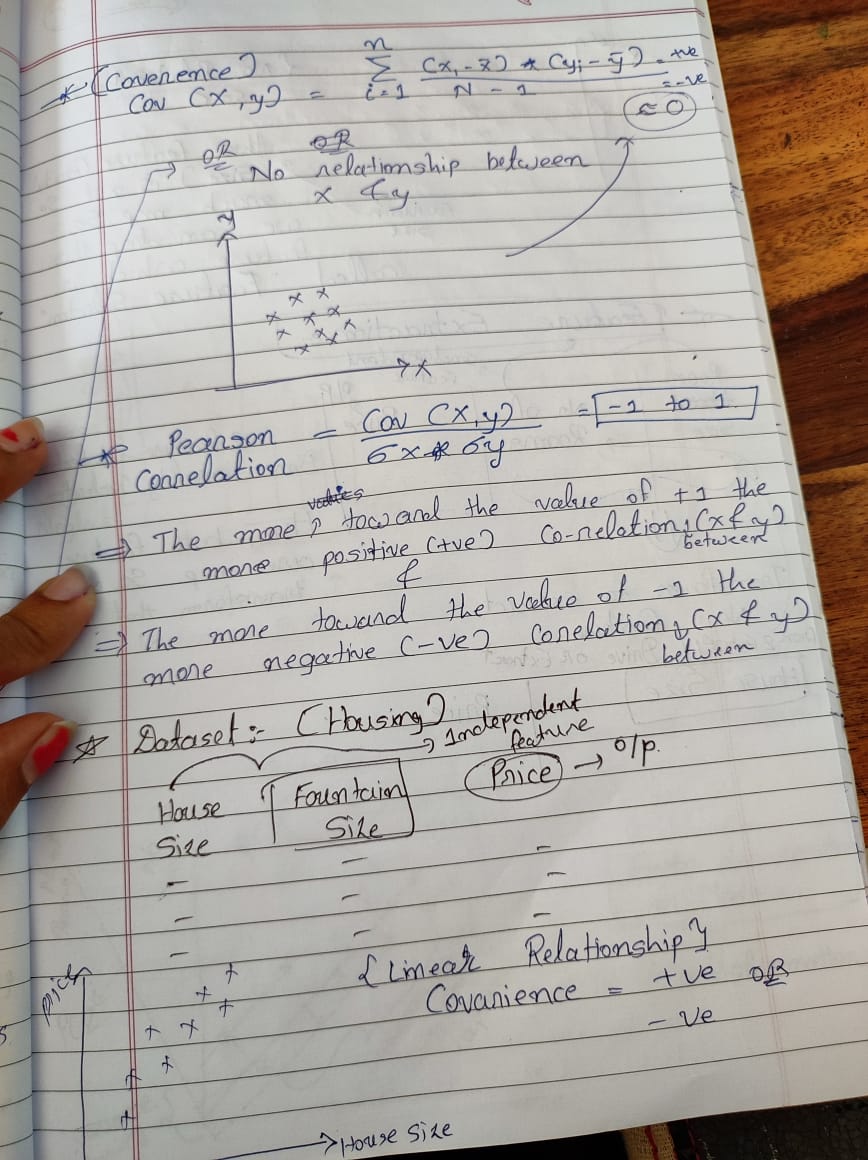 * (Covenence)
Cov (x,y) = n Σ i=1 (xi - x̄) * (yi - ȳ) / N - 1 = +ve
= -ve
≈ 0
OR OR
No relationship between
x & y
y
x
* Peanson Connelation = Cov (x,y) / σx * σy = -1 to 1
⇒ The more toward the value of +1 the
more positive (+ve) co-relation (x & y)
between
&
⇒ The more toward the value of -1 the
more negative (-ve) corelation (x & y)
between
* Dataset :- (Housing)
→ Independent
feature
House Fountain Price → o/p.
Size Size
- - -
- - -
- - -
{Linear Relationship}
Covanience = +ve OR
- ve
price
→ House size